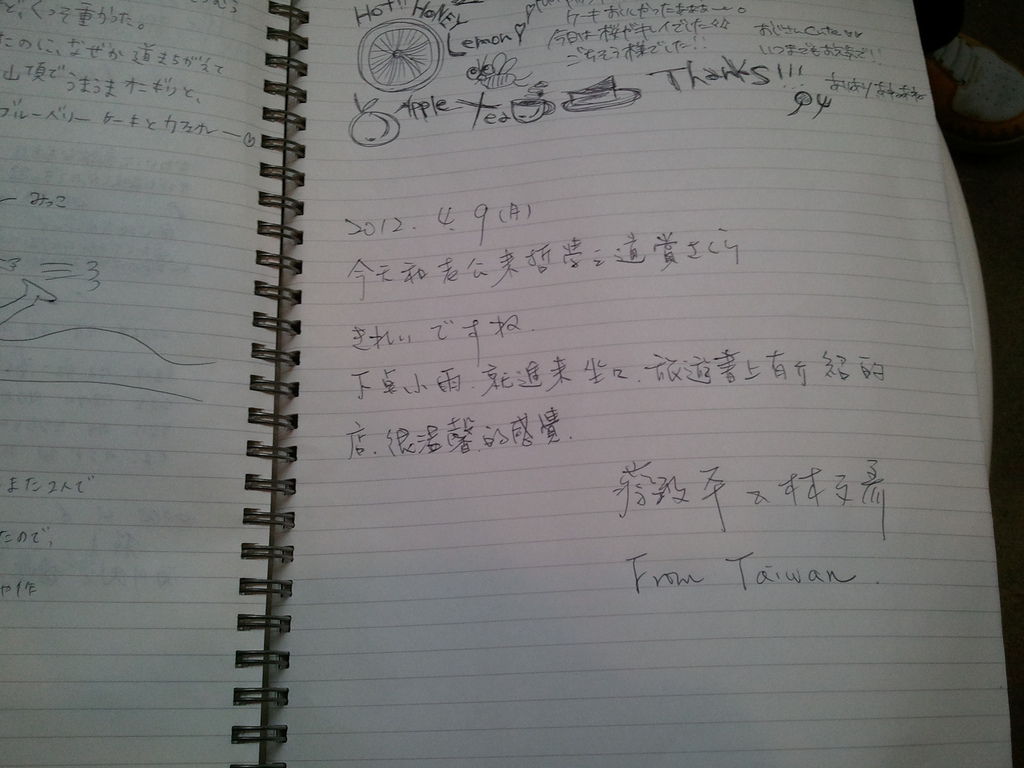 くって重かった。
たのに、なぜか道まちがえて
山頂でうまうまオニギリと、
ブルーベリーケーキとカフェオレー
みっこ
また2人で
たので、
や作
HOT!! HONEY
Lemon
ケーキおいしかったぁぁぁー。
今日は桜がキレイでした
ごちそう様でした!!
おじさんcute
いつまでもお元気で!!
Apple Tea
Thanks!!!
2012. 4. 9 (月)
今天和老公來哲學之道賞さくら
きれいですね.
下點小雨.就進來坐坐.旅遊書上有介紹的
店.很溫馨的感覺.
From Taiwan.